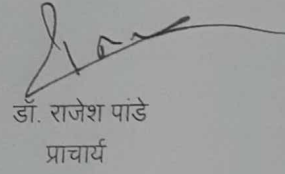 डॉ. राजेश पांडे
प्राचार्य